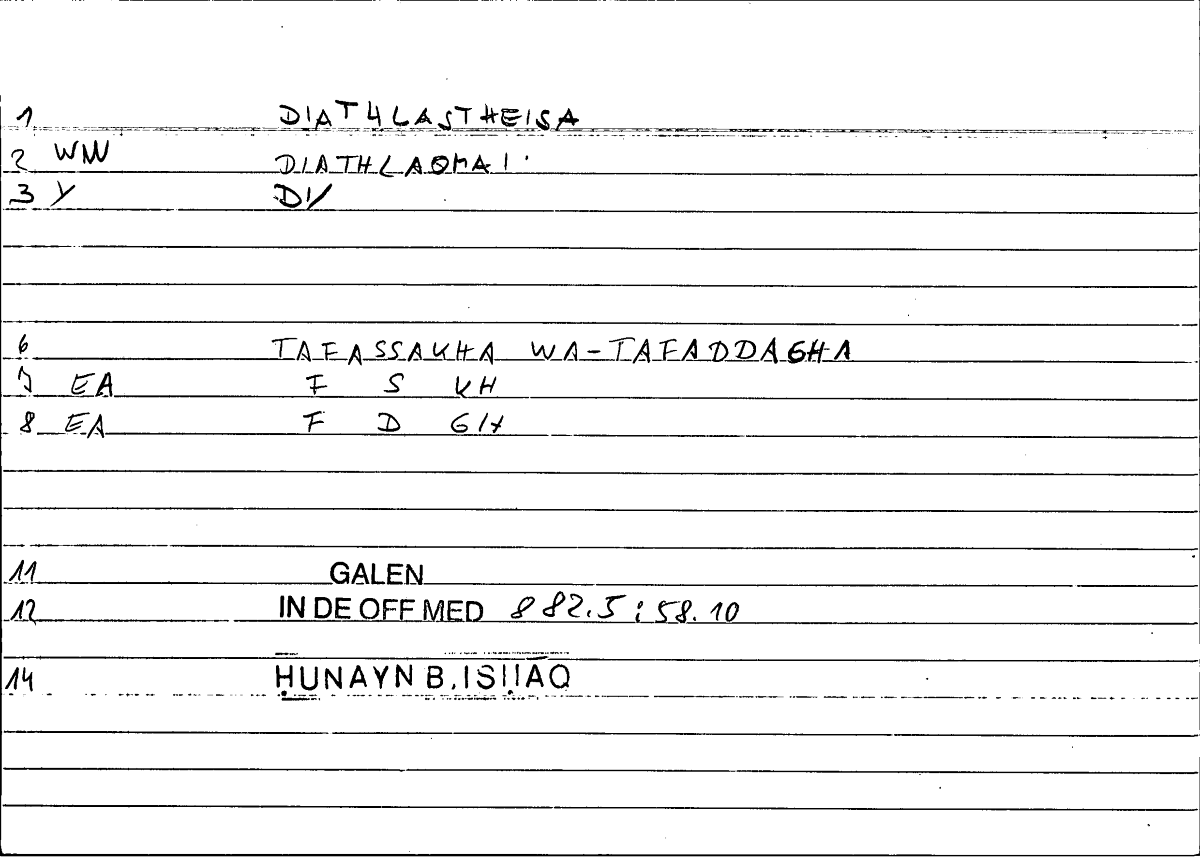 1 DIATHLASTHEISA
2 WM DIATHLAOMAI
3 Y DI/
6 TAFASSAKHA WA-TAFADDAGHA
7 EA F S KH
8 EA F D GH
11 GALEN
12 IN DE OFF MED 882.5 : 58.10
14 ḤUNAYN B. ISḤĀQ